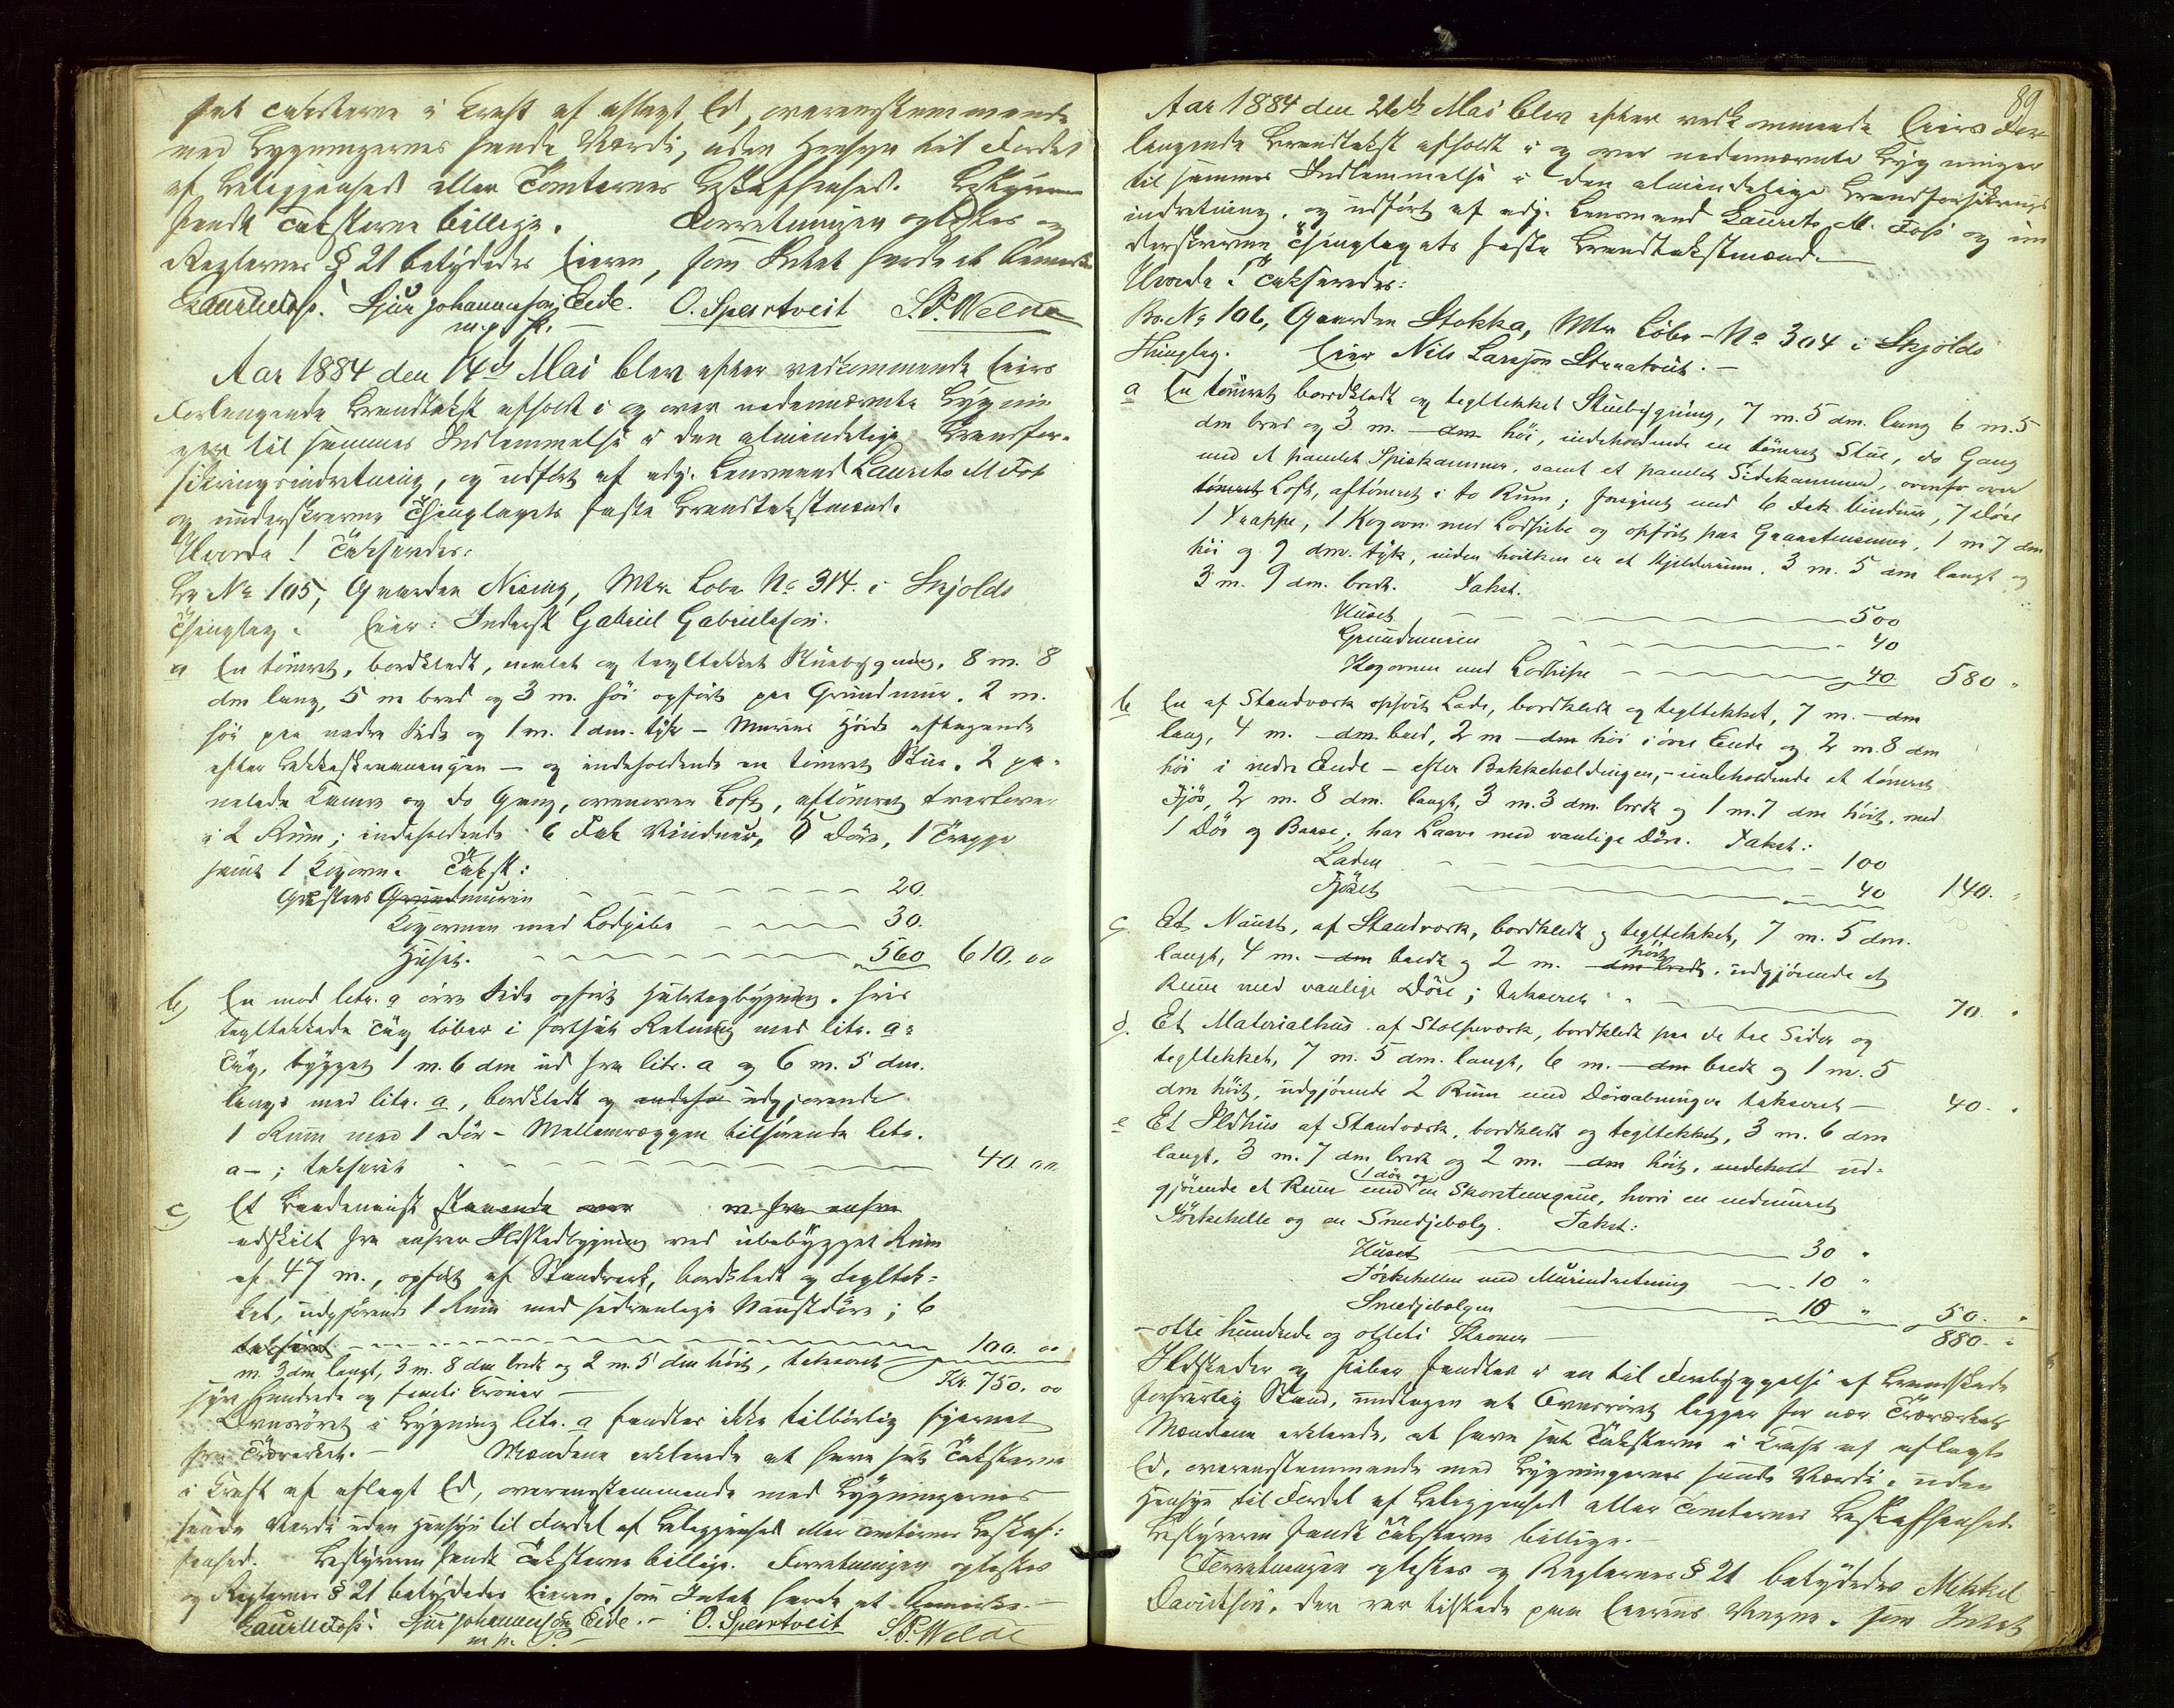 sat taksterne i Kraft af aflagt Ed, overensstemmende
med Bygningernes sande Værdi, uden Hensyn til Fordel
af Beliggenhed eller Tomternes Beskaffenhed. Bestyreren
fandt Taksterne billige. Forretningen oplæstes og
Reglernes § 21 betydedes Eieren, som Intet havde at bemærke
Laur M Foss. Sjur Johannesen Eide. O. Speartveit S. P. Welde
m. p. P. —
Aar 1884 den 14de Mai blev efter vedkommende Eiers
Forlangende Brandtakst afholdt i og over nedennævnte Bygnin
ger til sammes Indlemmelse i den almindelige Brandfor-
sikringsindretning, og udført af adj. Lensmand Laurits M Foss
og underskrevne Thinglagets faste Brandtakstmænd.
Hvorda! Takseredes:
Br No 105, Gaarden Nising, Mtr. Løbe No 314. i Skjolds
Thinglag. Eier: Inderst Gabriel Gabrielsson.
a En tømret, bordklædt, malet og tegltekket Stuebygning, 8 m. 8
dm lang, 5 m bred og 3 m. høi opført paa Grundmur, 2 m.
høi paa nedre Side og 1 m. 1 dm. tyk – Murens Høide aftagende
efter Bakkeskraaningen – og indeholdende en tømret Stue, 2 pa-
nelede Kamre og do Gang, ovenover Loft, aftømret tversover
i 2 Rum; indeholdende 6 Fak Vinduer, 8 Døre, 1 Trappe
samt 1 Kogovn. Takst:
Graastens Grundmuren 20.
Kogovnen med Lodpibe 30.
Huset. 560 610. 00
b) En mod litr. a øvre Side opført Halvtagbygning, hvis
tegltekkede Tag løber i fortsat Retning med litr. a's
Tag, bygget 1 m. 6 dm ud fra litr. a og 6 m. 5 dm.
langs med litr. a, bordklædt og indeho udgjørende
1 Rum med 1 Dør – Mellemvæggen tilhørende litr.
a – ; takseret 40. 00.
c) Et Baadenøst staaende over m fra anførte
adskilt fra anførte Ildstedbygning ved ubebygget Rum
af 47 m., opført af Standverk, bordklædt og tegltek-
ket, udgjørende 1 Rum med sædvanlige Naustdøre; 6
takseret 100. 00
m. 3 dm langt, 3 m. 8 dm bredt og 2 m. 5 dm høit, takseret Kr. 750. 00
syv Hundrede og femti Kroner –
Ovnsrøret i Bygning litr. a fandtes ikke tilbørlig fjernet
fra Træverket. – Mændene erklærede at have sat Taksterne
i Kraft af aflagt Ed, overensstemmende med Bygningernes
sande Værdi uden Hensyn til Fordel af Beliggenhed eller Tomternes Beskaf-
fenhed. Bestyreren fandt Taksterne billige. Forretningen oplæstes
og Reglernes § 21 betydedes Eieren, som Intet havde at bemærke. –
Laur M Foss. Sjur Johannesson Eide. – O. Speartveit S. P. Welde
m. p. P. –
89
Aar 1884 den 26de Mai blev efter vedkommende Eiers For-
langende Brandtakst afholdt i og over nedennævnte Bygninger
til sammes Indlemmelse i den almindelige Brandforsikrings
indretning, og udført af adj. Lensmand Laurits M. Foss og un
derskrevne Thinglagets faste Brandtakstmænd. –
Hvorda! Takseredes:
Br. No 106, Gaarden Stokka, Mtr Løbe-No 304 i Skjolds
Thinglag. Eier Nils Larsson Straatveit. –
a En tømret bordklædt og tegltekket Stuebygning, 7 m. 5 dm. lang 6 m. 5
dm bred og 3 m. – dm høi, indeholdende en tømret Stue, do Gang
med et panelet Spiskammer, samt et panelet Sidekammer, ovenfor over
tømret Loft, aftømret i to Rum; forsynet med 6 Fak Vinduer, 7 Døre
1 Trappe, 1 Kogovn med Lodpibe og opført paa Graastensmur, 1 m 7 dm
høi og 9 dm. tyk, inden hvilken er et Kjelderrum, 3 m. 5 dm langt og
3 m. 9 dm. bredt. Takst.
Huset 500
Grundmuren 40
Kogovnen med Lodpibe 40 580 "
b En af Standværk opført Lade, bordklædt og tegltekket, 7 m. – dm
lang, 4 m. – dm bred, 2 m – dm høi i øvre Ende og 2 m. 8 dm
høi i nedre Ende – efter Bakkehældingen, – indeholdende et tømret
Fjøs, 2 m. 8 dm. langt, 3 m. 3 dm. bredt og 1 m. 7 dm høit, med
1 Dør og Baase; har Laave med vanlige Døre. Takst:
Laden 100
Fjøset 40 140. "
c, Et Naust, af Standværk, bordklædt og tegltekket, 7 m. 5 dm.
langt, 4 m. – dm bredt og 2 m. – dm bredt høit, udgjørende et
Rum med vanlige Døre; takseret 70. "
d. Et Materialhus af Stolpeværk, bordklædt paa de tre Sider og
tegltekket, 7 m. 5 dm. langt, 6 m. – dm bredt og 1 m. 5
dm høit, udgjørende 2 Rum med Døraabninger takseret – 40. "
e Et Ildhus af Standværk, bordklædt og tegltekket, 3 m. 6 dm
langt, 3 m. 7 dm bredt og 2 m. – dm høit, indehold ud-
gjørende et Rum med 1 dør og en Skorstensgrue, hvori en indmuret
Tørkehelle og en Smedjebælg. Takst:
Huset 30 "
Tørkehellen med Murindretning 10 "
Smedjebælgen 10 " 50. "
– otte hundrede og otteti Kroner – 880. "
Ildsteder og Piber fandtes i en til Forebyggelse af Brandskade
forsvarlig Stand, undtagen at Ovnsrøret ligger for nær Træværket.
Mændene erklærede, at have sat Taksterne i Kraft af aflagte
Ed, overensstemmende med Bygningernes sande Værdi, uden
Hensyn til Fordel af Beliggenhed eller Tomternes Beskaffenhed.
Bestyreren fandt Taksterne billige. –
Forretningen oplæstes og Reglernes § 21 betydedes Mikkel
Davidsen, der var tilstede paa Eierens Vegne, som Intet